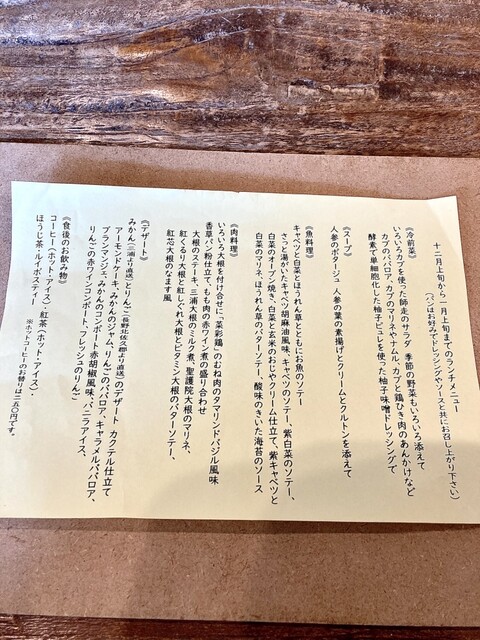 十二月上旬から一月上旬までのランチメニュー
（パンはお好みでドレッシングやソースと共にお召し上がり下さい）
《冷前菜》
いろいろカブを使った師走のサラダ 季節の野菜もいろいろ添えて
カブのババロア、カブのマリネやナムル、カブと鶏ひき肉のあんかけなど
酵素で単細胞化した柚子ピュレを使った柚子味噌ドレッシングで
《スープ》
人参のポタージュ 人参の葉の素揚げとクリームとクルトンを添えて
《魚料理》
キャベツと白菜とほうれん草とともにお魚のソテー
さっと湯がいたキャベツ胡麻油風味、キャベツのソテー、紫白菜のソテー、
白菜のオーブン焼き、白菜と玄米のおじやクリーム仕立て、紫キャベツと
白菜のマリネ、ほうれん草のバターソテー、酸味のきいた海苔のソース
《肉料理》
いろいろ大根を付け合せに「菜彩鶏」のむね肉のタマリンドバジル風味
香草パン粉仕立て、もも肉の赤ワイン煮の盛り合わせ
大根のステーキ、三浦大根のミルク煮、聖護院大根のマリネ、
紅くるり大根と紅しぐれ大根とビタミン大根のバターソテー、
紅芯大根のなます風
《デザート》
みかん（三浦より直送）とりんご（長野北佐久郡より直送）のデザート カクテル仕立て
アーモンドケーキ、みかんのジャム、りんごのババロア、キャラメルババロア、
ブランマンジェ、みかんのコンポート赤胡椒風味、バニラアイス、
りんごの赤ワインコンポート、フレッシュのりんご
《食後のお飲み物》
コーヒー（ホット・アイス）・紅茶（ホット・アイス）・
ほうじ茶・ルイボスティー
※ホットコーヒーのお替りは二五〇円です。